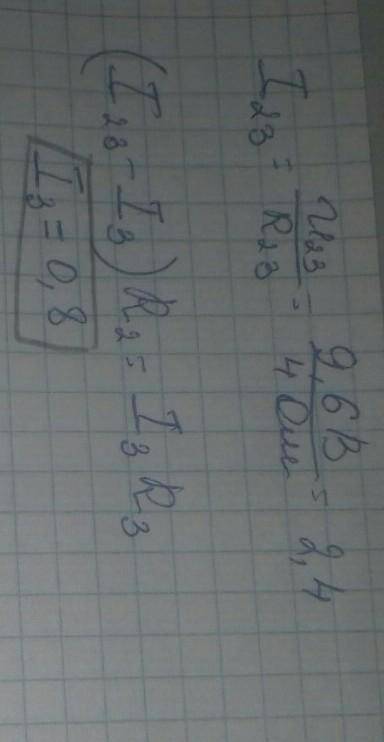 I₂₃ = U₂₃/R₂₃ = 9,6В/4Ом = 2,4
(I₂₃ - I₃) R₂ = I₃ R₃
I₃ = 0,8